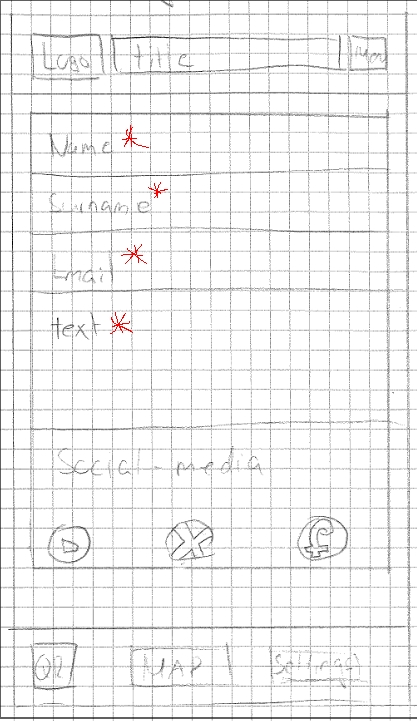 Logo title Menu
Name *
Surname *
Email *
text *
Social-media
X £
QR MAP Settings